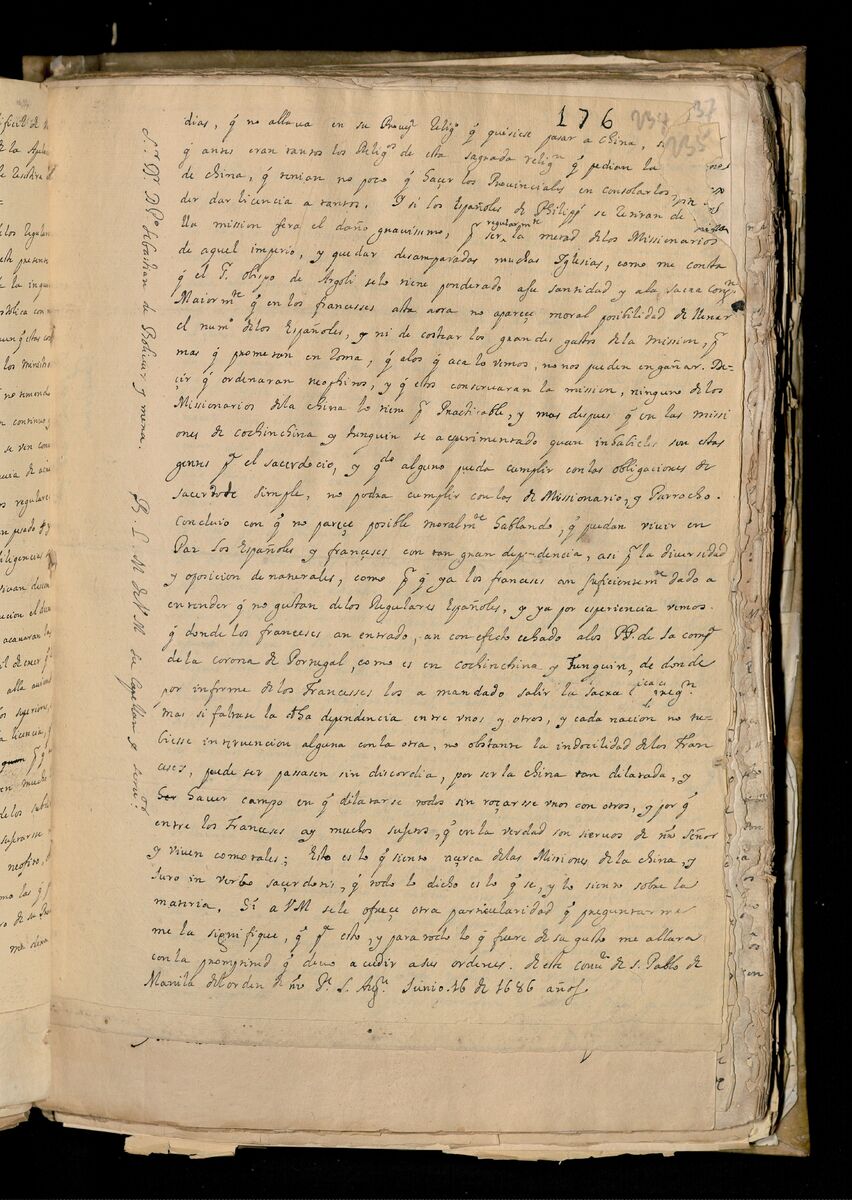 176
237
235
37
dias, q̃ no allaua en su Prouᵃ Relig.º q̃ quisiese pasar a China, s
q̃ antes eran tantos los Relig.ˢ de esta sagrada relig.ⁿ q̃ pedian la
de china, q̃ tenian no poco q̃ hacer los Prouinciales en consolarlos,
der dar licencia a tantos. Y si los Españoles de Philipp.ˢ se retiran de
la mission sera el daño grauissimo, p.ʳ ser regularm.ᵗᵉ la metad de los Missionarios
de aquel imperio, y quedar desamparadas muchas Iglesias, como me consta
q̃ el S.ʳ obispo de Argoli selo tiene ponderado a su santidad y ala sacra Cong.ⁿ
Maiorm.ᵗᵉ q̃ en los francesses asta aora no apareçe moral posibilidad de llenar
el num.º delos Españoles, y ni de costear los grandes gastos de la mission, p.ʳ
mas q̃ prometan en Roma, q̃ alos q̃ aca lo vemos, no nos pueden engañar. De-
çir q̃ ordenaran neophitos, y q̃ estos conseruaran la mission, ninguno de los
Missionarios dela China lo tiene p.ʳ Practicable, y mas despues q̃ en las missi
ones de cochinchina y tunquin se a experimentado quan inhabiles son estas
gentes p.ᵃ el sacerdocio, y q.ᵈᵒ alguno pueda cumplir con las obligaciones de
sacerdote simple, no podra cumplir con las de Missionario, y Parrocho.
Concluio con q̃ no pareçe posible moralm.ᵗᵉ hablando, q̃ puedan viuir en
Paz los Españoles y françeses con tan gran dependencia, asi p.ʳ la diuersidad
y oposicion de naturales, como p.ʳ q̃ ya los franceses an suficientem.ᵗᵉ dado a
entender q̃ no gustan delos Regulares Españoles, y ya por esperiencia vemos.
q̃ donde los franceses an entrado, an con efecto echado alos PP. de la comp.ᵃ
de la corona de Portugal, como es en cochinchina y Tunquin, de donde
por informe de los Francesses los a mandado salir la sacra
mas si faltase la dha dependencia entre vnos y otros, y cada nacion no tu-
biesse interuencion alguna con la otra, no obstante la indocilidad delos Fran
ceses, puede ser passasen sin discordia, por ser la china tan dilatada, y
hauer campo en q̃ dilatarse todos sin roçarsse vnos con otros, y por q̃
entre los Franceses ay muchos sugetos, q̃ en la verdad son sieruos de nr̃o señor
y viuen como tales; Esto es lo q̃ siento açerca delas Misiones de la china, y
Juro in verbo sacerdotis, q̃ todo lo dicho es lo q̃ se, y lo siento sobre la
materia. Si a VM se le ofreçe otra particularidad q̃ preguntarme
me la signifique, q̃ p.ᵃ esto, y para todo lo q̃ fuere de su gusto me allara
con la promptitud q̃ deuo acudir a sus ordenes. de este conu.ᵗᵒ de S. Pablo de
Manila del orden de nr̃o P.ᵉ S. Aug.ⁿ Junio 16 de 1686 años
S.ʳ Dº Sebastian de Boliuar y mena.
B. L. M de VM su Capellan y seru.ᵒʳ